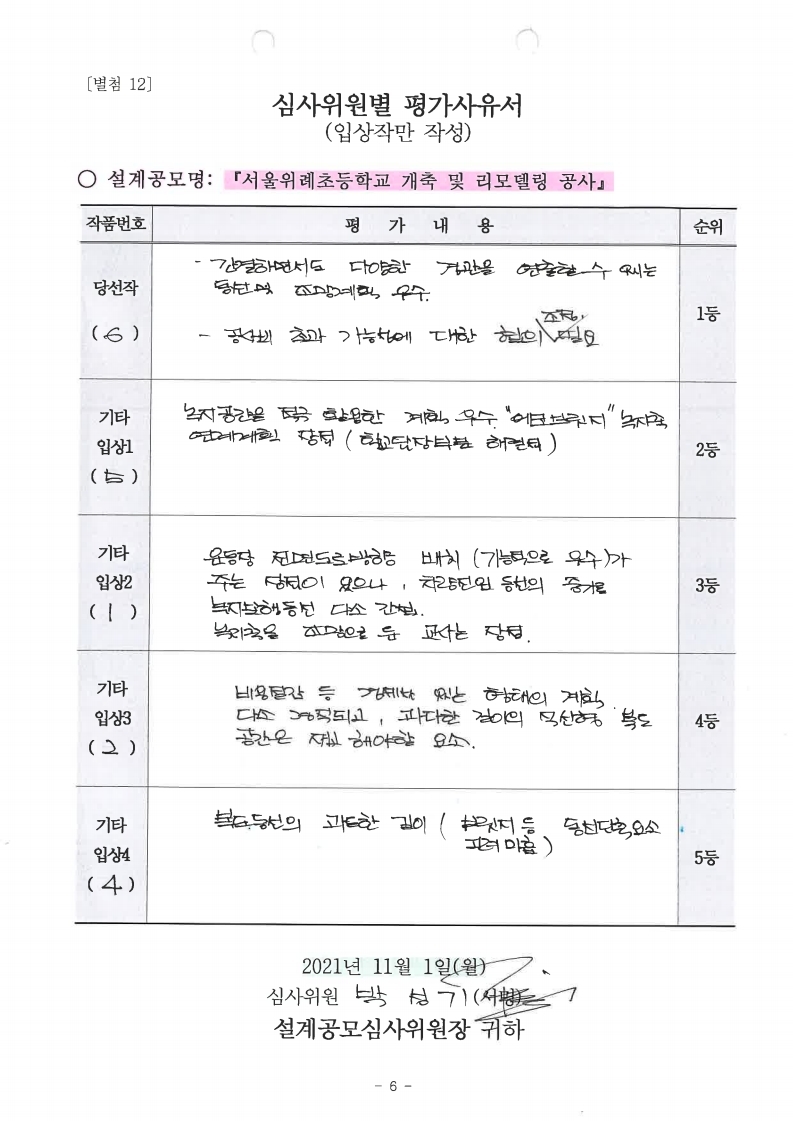 [별첨 12]
심사위원별 평가사유서
(입상작만 작성)
○ 설계공모명: 『서울위례초등학교 개축 및 리모델링 공사』
작품번호 평 가 내 용 순위
당선작
(6)
- 간결하면서도 다양한 경관을 연출할 수 있는
조망계획 우수.
- 공사비 초과 가능성에 대한 협의 조정, 필요
1등
기타
입상1
(5)
녹지공간을 적극 활용한 계획 우수. "에코브릿지" 녹지축
연계계획 장점 (학교담장부분 해결점)
2등
기타
입상2
(1)
운동장 전면도로방향 배치 (기능적으로 우수)가
주는 장점이 있으나, 차량진입 동선의 증가로
녹지보행동선 다소 간섭.
녹지축을 조망으로 둔 교사는 장점.
3등
기타
입상3
(2)
비용절감 등 경제성 있는 형태의 계획
다소 경직되고, 과다한 길이의 복도
공간은 재고 해야할 요소.
4등
기타
입상4
(4)
복도동선의 과도한 길이 (브릿지 등 동선단축요소
고려 미흡)
5등
2021년 11월 1일(월)
심사위원 박 성 기 (서명)
설계공모심사위원장 귀하
- 6 -